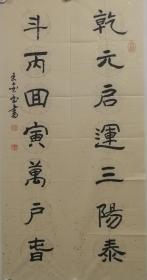 乾元启運三陽泰
斗丙回寅萬户旾